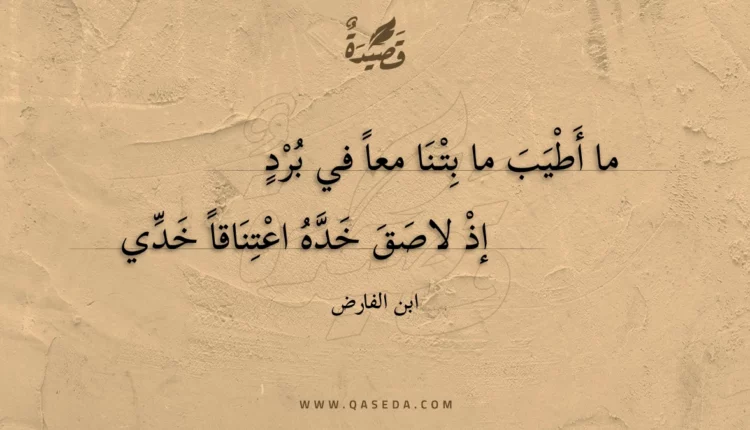 قَصِيْدَةٌ
ما أَطْيَبَ ما بِتْنَا معاً في بُرْدٍ
إذْ لاصَقَ خَدَّهُ اعْتِنَاقاً خَدِّي
ابن الفارض
WWW.QASEDA.COM